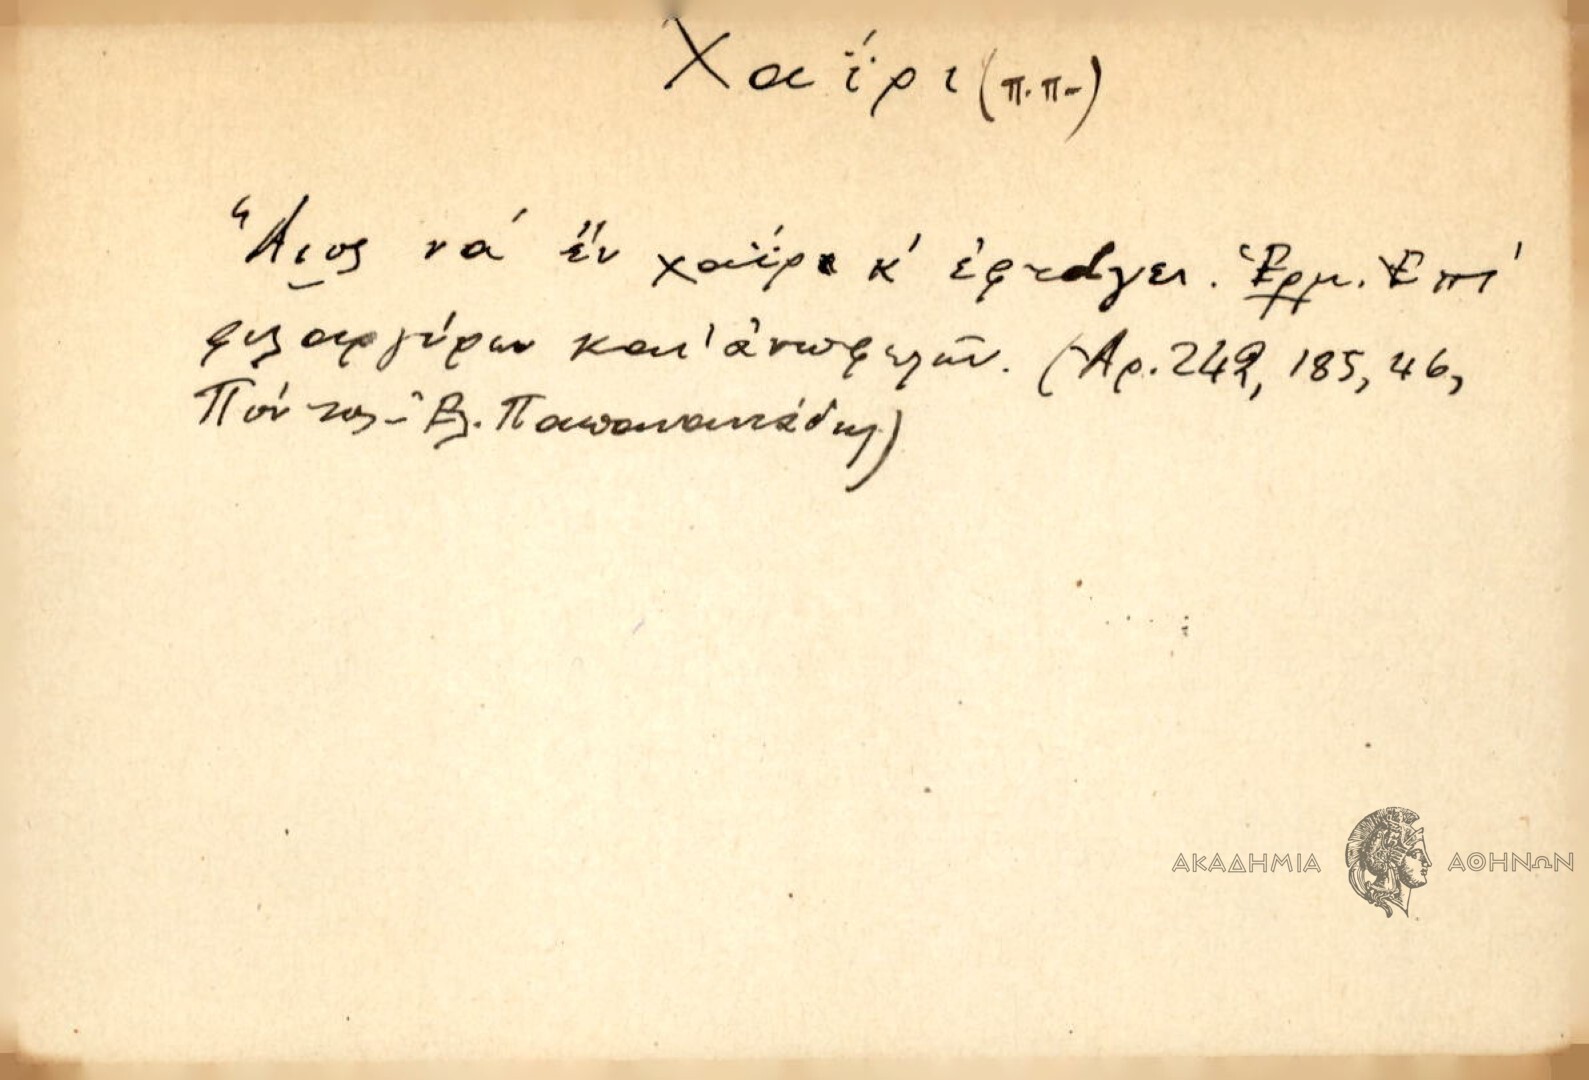 Χαΐρι (π.π.)
Ἅιος νά ἔν χαΐρι κ' ἐφτάγει. Ἑρμ. Ἐπί
φιλαργύρων καί ἀνωφελῶν. (Ἀρ. 249, 185, 46,
Πόντος - Ἐλ. Παπαναστάδης)
ΑΚΑΔΗΜΙΑ ΑΘΗΝΩΝ